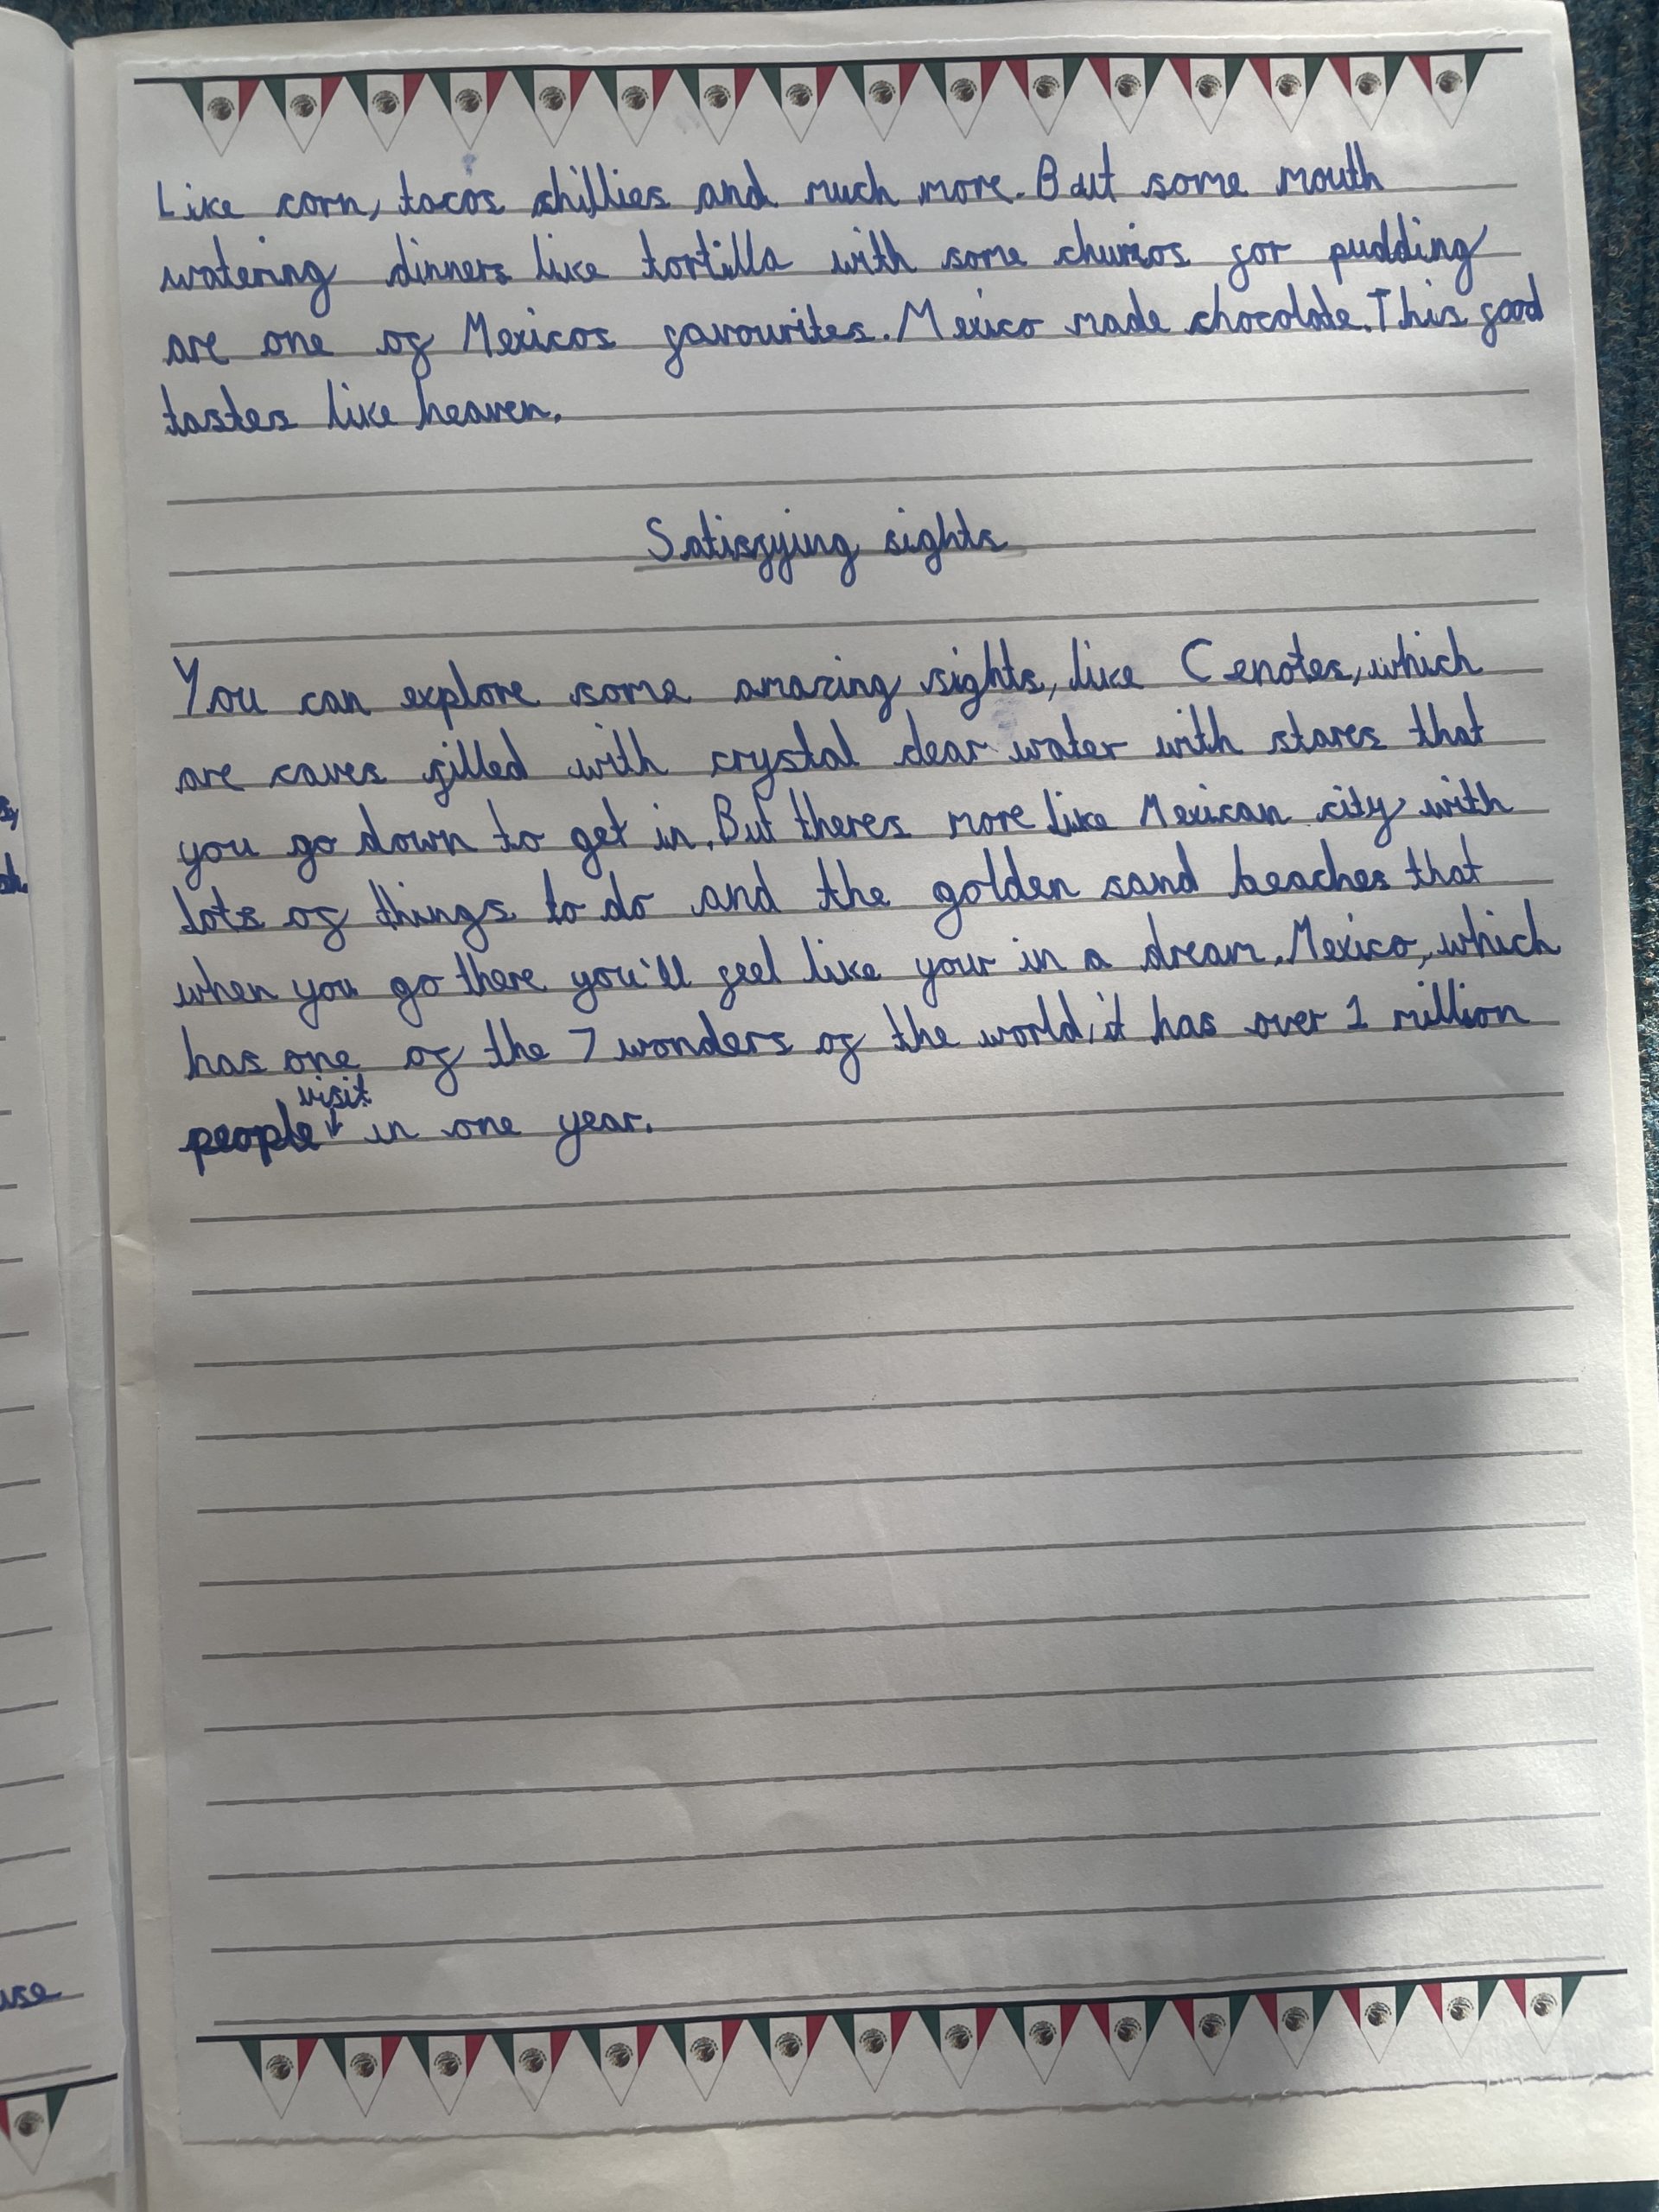 Like corn, tacos chillies and much more. But some mouth
watering dinners like tortilla with some churros for pudding
are one of Mexicos favourites. Mexico made chocolate. This food
tastes like heaven.
Satisfying sights
You can explore some amazing sights, like Cenotes, which
are caves filled with crystal clear water with stares that
you go down to get in. But theres more like Mexican city with
lots of things to do and the golden sand beaches that
when you go there you'll feel like your in a dream. Mexico, which
has one of the 7 wonders of the world, it has over 1 million
people visit in one year.